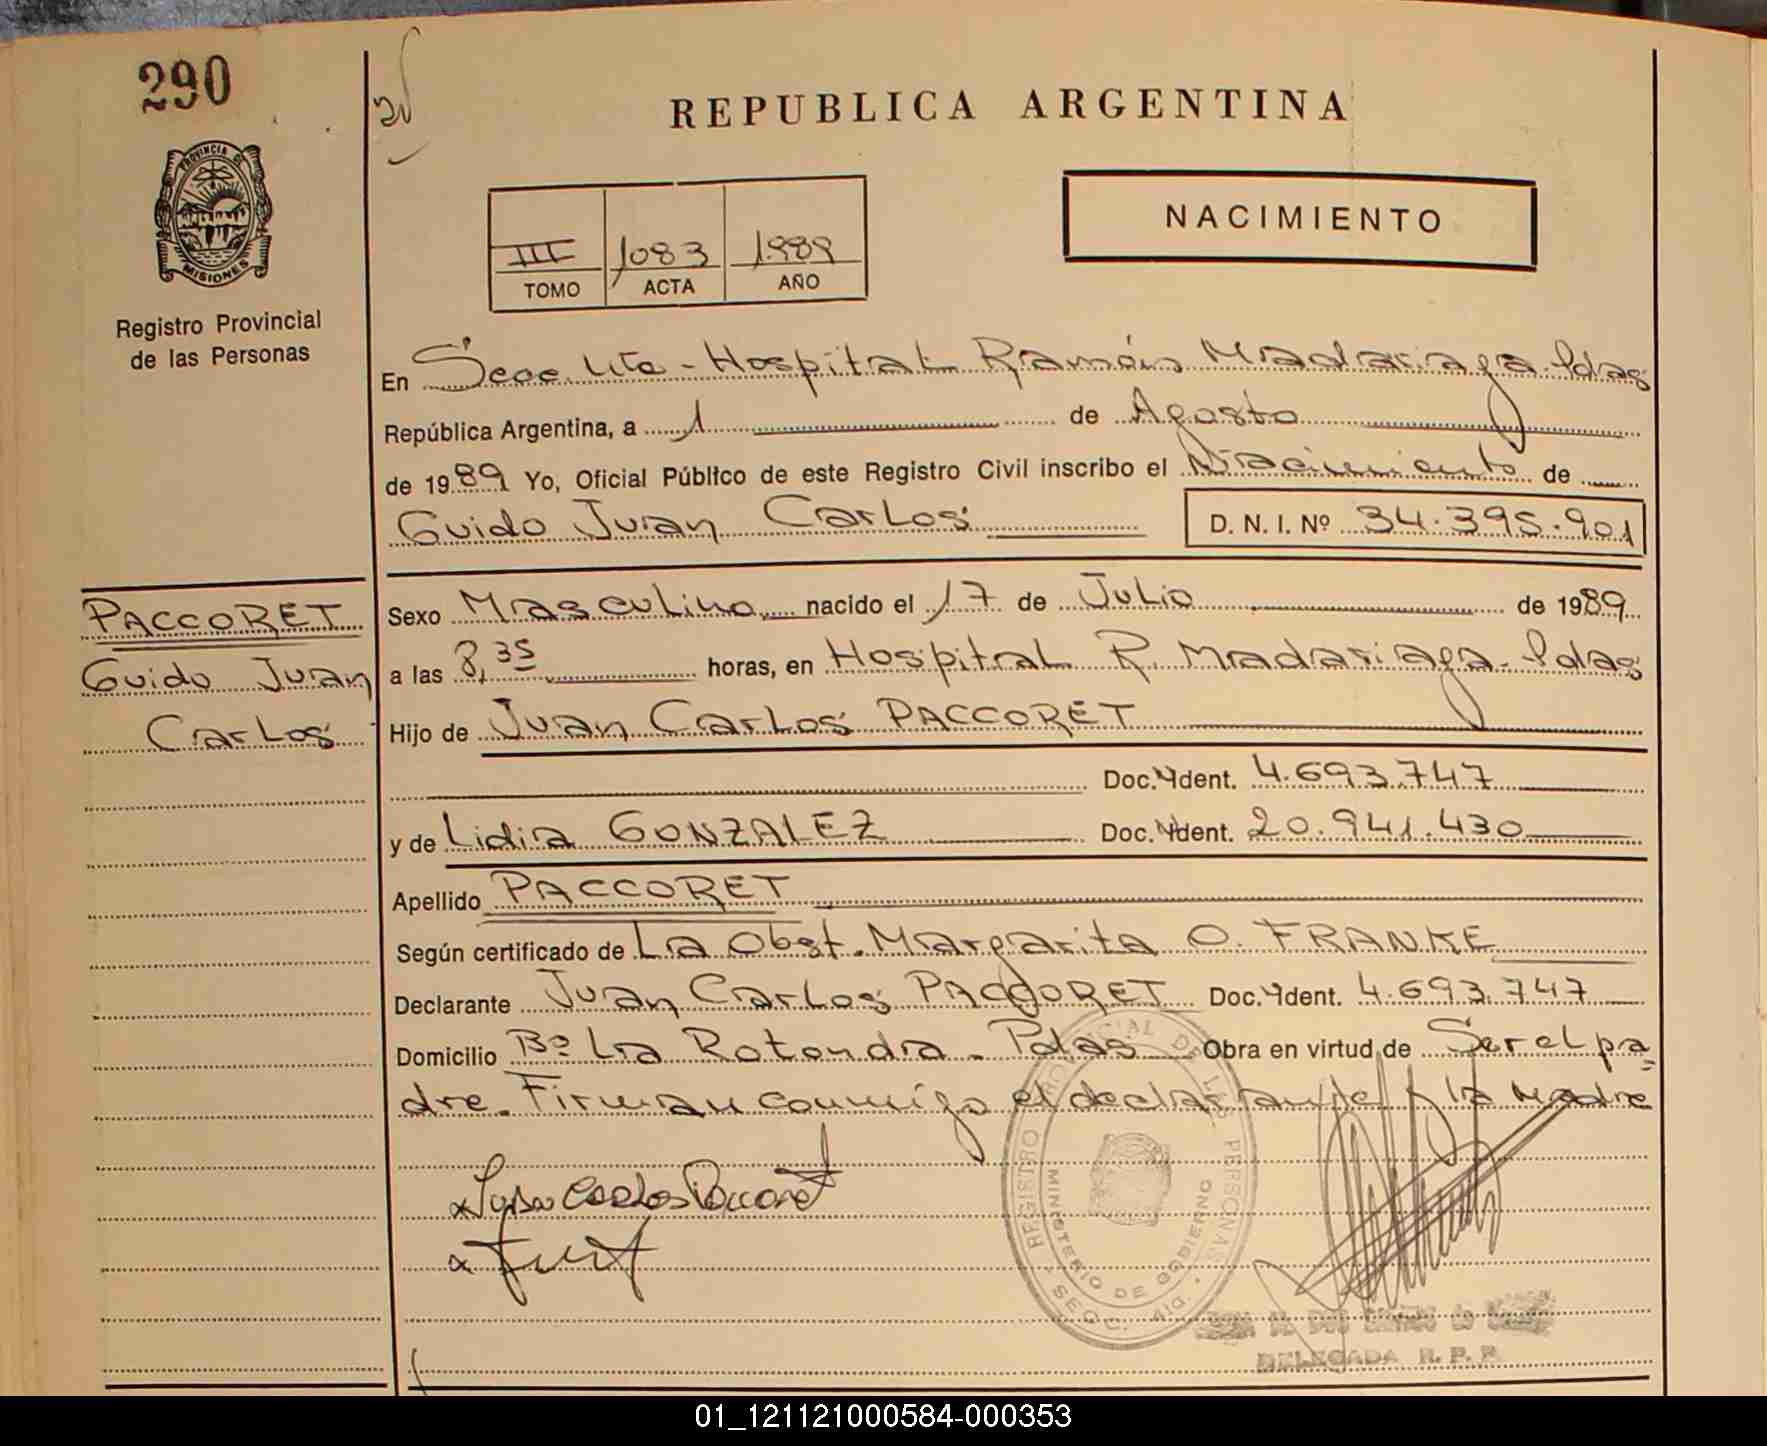 290
REPUBLICA ARGENTINA
PROVINCIA DE
MISIONES
Registro Provincial
de las Personas
III 1083 1989
TOMO ACTA AÑO
NACIMIENTO
En Secc. Uta - Hospital Ramón Madariaga. Pdas
República Argentina, a 1 de Agosto
de 1989 Yo, Oficial Público de este Registro Civil inscribo el Nacimiento de
Guido Juan Carlos D. N. I. Nº 34.395.901
PACCORET
Guido Juan
Carlos
Sexo Masculino nacido el 17 de Julio de 1989
a las 8,35 horas, en Hospital R. Madariaga - Pdas
Hijo de Juan Carlos PACCORET
Doc. Ident. 4.693.747
y de Lidia GONZALEZ Doc. Ident. 20.941.430
Apellido PACCORET
Según certificado de La Obst. Margarita O. FRANKE
Declarante Juan Carlos PACCORET Doc. Ident. 4.693.747
Domicilio Bº La Rotonda - Pdas Obra en virtud de Ser el pa=
dre. Firman conmigo el declarante y la Madre
x Juan Carlos Paccoret
REGISTRO PROVINCIAL DE LAS PERSONAS
MINISTERIO DE GOBIERNO
DELEGADA R. P. P.
01_121121000584-000353